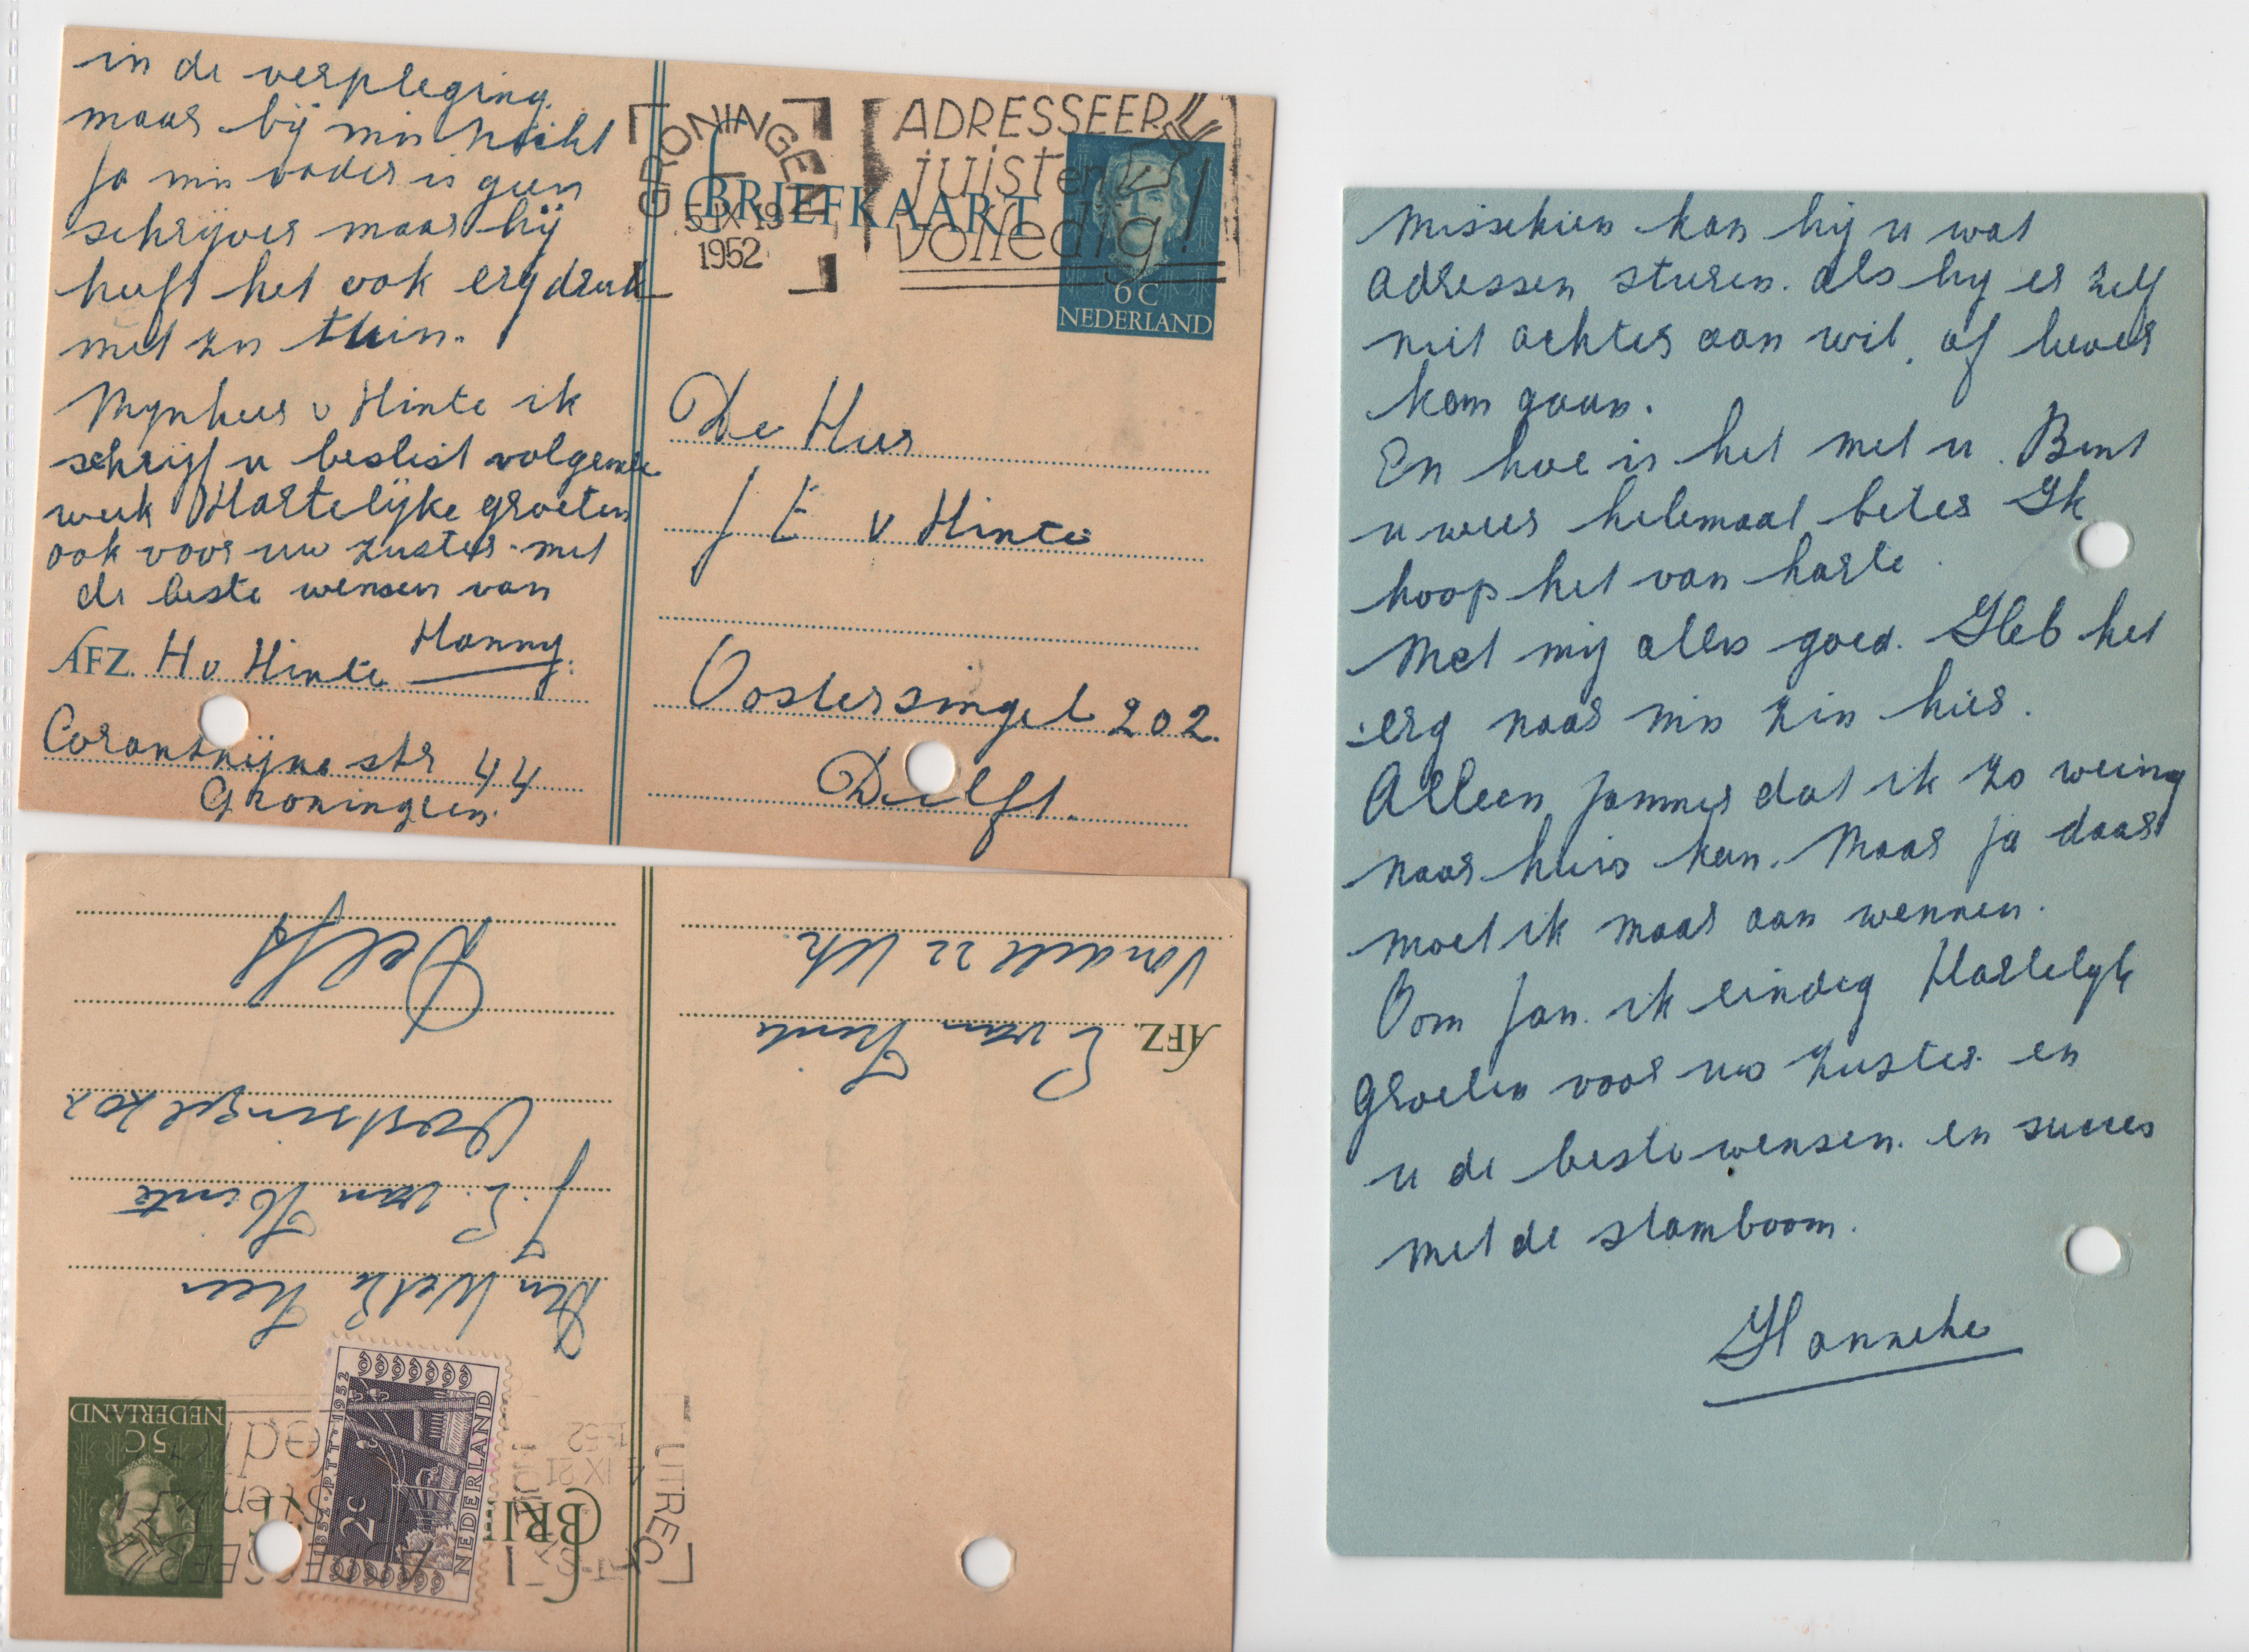 in de verpleging.
maar bij mn nicht
Ja mn vader is geen
schrijver maar hij
heeft het ook erg druk
met zn tuin.
Mynheer v Hinte ik
schrijf u beslist volgende
week Hartelijke groeten
ook voor uw zuster. met
de beste wensen van
Hanny.
AFZ. H v Hinte
Corantijne str 44
Groningen.
GRONINGEN
5 IX 19
1952
ADRESSEER
juist en
volledig!
BRIEFKAART
6 C
NEDERLAND
De Heer
J E v Hinte
Oostersingel 202.
Delft.
NEDERLAND
5 C
1852·PTT·1952
2 c
NEDERLAND
UTRECHT
IX 21
Den Weled. Heer
J. E. van Hinte
Oostsingel 202
Delft
AFZ. E van Hinte
Vondell 22 Utr.
Misschien kan hij u wat
adressen sturen. als hy er zelf
niet achter aan wil. of liever
kan gaan.
En hoe is het met u. Bent
u weer helemaal beter Ik
hoop het van harte.
Met mij alles goed. Heb het
erg naar mn zin hier.
Alleen jammer dat ik zo weinig
naar huis kan. Maar ja daar
moet ik maar aan wennen.
Oom Jan. ik eindig Hartelijk
Groeten voor uw zuster en
u de beste wensen. en succes
met de stamboom.
Hanneke